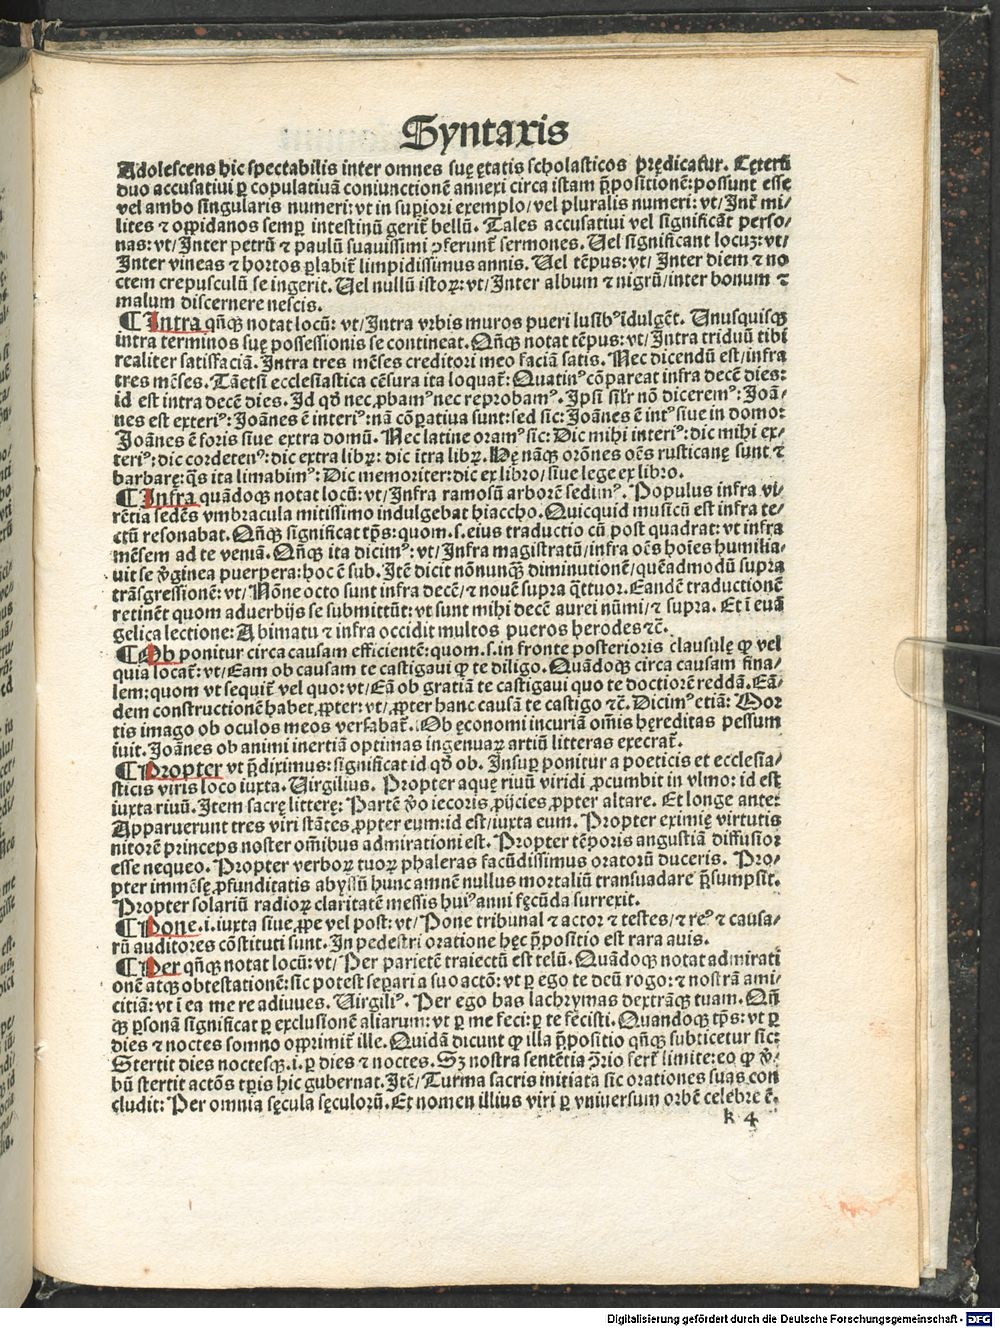 Syntaxis
Adolescens hic spectabilis inter omnes suę ętatis scholasticos prędicatur. Cęterũ
duo accusatiui ꝑ copulatiuã coniunctionẽ annexi circa istam p̃positionẽ: possunt esse
vel ambo singularis numeri: vt in suꝑiori exemplo/ vel pluralis numeri: vt/ Int̃ mi-
lites ⁊ oppidanos semꝑ intestinũ gerit̃ bellũ. Tales accusatiui vel significãt perso-
nas: vt/ Inter petrũ ⁊ paulũ suauissimi ꝓferunt̃ sermones. Uel significant locuꝫ: vt/
Inter vineas ⁊ hortos ꝑlabit̃ limpidissimus annis. Uel tẽpus: vt/ Inter diem ⁊ no
ctem crepusculũ se ingerit. Uel nullũ istoꝝ: vt/ Inter album ⁊ nigrũ/ inter bonum ⁊
malum discernere nescis.
¶ Intra qñqꝫ notat locũ: vt/ Intra vrbis muros pueri lusibꝰ ĩdulgẽt. Unusquisqꝫ
intra terminos suę possessionis se contineat. Qñqꝫ notat tẽpus: vt/ Intra triduũ tibi
realiter satisfaciã. Intra tres mẽses creditori meo faciã satis. Nec dicendũ est/ infra
tres mẽses. Tãetsi ecclesiastica cẽsura ita loquat̃: Quatinꝰ cõpareat infra decẽ dies:
id est intra decẽ dies. Id qđ nec ꝓbamꝰ nec reprobamꝰ. Ipsi sil̃r nõ diceremꝰ: Joã-
nes est exteriꝰ: Joãnes ẽ interiꝰ: nã cõꝑatiua sunt: sed sic: Joãnes ẽ intꝰ siue in domo:
Joãnes ẽ foris siue extra domũ. Nec latine oramꝰ sic: Dic mihi interiꝰ: dic mihi ex-
teriꝰ: dic cordetenꝰ: dic extra libꝝ: dic ĩtra libꝝ. Hę nãqꝫ orõnes oẽs rusticanę sunt ⁊
barbarę: q̃s ita limabimꝰ: Dic memoriter: dic ex libro/ siue lege ex libro.
¶ Infra quãdoqꝫ notat locũ: vt/ Infra ramosũ arborẽ sedimꝰ. Populus infra vi-
rẽtia sedẽs vmbracula mitissimo indulgebat hiaccho. Quicquid musicũ est infra te-
ctũ resonabat. Qñqꝫ significat tp̃s: quom .s. eius traductio cũ post quadrat: vt infra
mẽsem ad te veniã. Qñqꝫ ita dicimꝰ: vt/ Infra magistratũ/ infra oẽs hoĩes humilia-
uit se v̓ginea puerpera: hoc ẽ sub. Itẽ dicit nõnunqꝫ̃ diminutionẽ/ quẽadmodũ supra
trãsgressionẽ: vt/ Nõne octo sunt infra decẽ/ ⁊ nouẽ supra q̃ttuor. Eandẽ traductionẽ
retinẽt quom aduerbijs se submittũt: vt sunt mihi decẽ aurei nũmi/ ⁊ supra. Et ĩ euã
gelica lectione: A bimatu ⁊ infra occidit multos pueros herodes ⁊c̃.
¶ Ob ponitur circa causam efficientẽ: quom .s. in fronte posterioris clausulę ꝙ vel
quia locat̃: vt/ Eam ob causam te castigaui ꝙ te diligo. Quãdoqꝫ circa causam fina-
lem: quom vt sequit̃ vel quo: vt/ Eã ob gratiã te castigaui quo te doctiorẽ reddã. Eã-
dem constructionẽ habet ꝓpter: vt/ ꝓpter hanc causã te castigo ⁊c̃. Dicimꝰ etiã: Mor
tis imago ob oculos meos versabat̃. Ob ęconomi incuriã om̃is hęreditas pessum
iuit. Joãnes ob animi inertiã optimas ingenuaꝝ artiũ litteras execrat̃.
¶ Propter vt p̃diximus: significat id qđ ob. Insuꝑ ponitur a poeticis et ecclesia-
sticis viris loco iuxta. Uirgilius. Propter aquę riuũ viridi ꝓcumbit in vlmo: id est
iuxta riuũ. Item sacrę litterę: Partẽ v̓o iecoris ꝓijcies ꝓpter altare. Et longe ante:
Apparuerunt tres viri stãtes ꝓpter eum: id est/ iuxta eum. Propter eximię virtutis
nitorẽ princeps noster om̃ibus admirationi est. Propter tẽporis angustiã diffusior
esse nequeo. Propter verboꝝ tuoꝝ phaleras facũdissimus oratorũ duceris. Pro-
pter immẽsę ꝓfunditatis abyssũ hunc amnẽ nullus mortaliũ transuadare p̃sumpsit.
Propter solariũ radioꝝ claritatẽ messis huiꝰ anni fęcũda surrexit.
¶ Pone .i. iuxta siue ꝓpe vel post: vt/ Pone tribunal ⁊ actor ⁊ testes/ ⁊ reꝰ ⁊ causa-
rũ auditores cõstituti sunt. In pedestri oratione hęc p̃positio est rara auis.
¶ Per qñqꝫ notat locũ: vt/ Per parietẽ traiectũ est telũ. Quãdoqꝫ notat admirati
onẽ atqꝫ obtestationẽ: sic potest seꝑari a suo actõ: vt ꝑ ego te deũ rogo: ⁊ nostrã ami-
citiã: vt ĩ ea me re adiuues. Uirgiliꝰ. Per ego has lachrymas dextrãqꝫ tuam. Qñ
qꝫ ꝑsonã significat ꝑ exclusionẽ aliarum: vt ꝑ me feci: ꝑ te fecisti. Quandoqꝫ tp̃s: vt ꝑ
dies ⁊ noctes somno opprimit̃ ille. Quidã dicunt ꝙ illa p̃positio qñqꝫ subticetur sic:
Stertit dies noctesqꝫ .i. ꝑ dies ⁊ noctes. Sꝫ nostra sentẽtia ꝯ̃rio fert̃ limite: eo ꝙ v̓-
bũ stertit actõs tꝑis hic gubernat. Itẽ/ Turma sacris initiata sic orationes suas con
cludit: Per omnia sęcula sęculorũ. Et nomen illius viri ꝑ vniuersum orbẽ celebre ẽ.
k 4
Digitalisierung gefördert durch die Deutsche Forschungsgemeinschaft - DFG